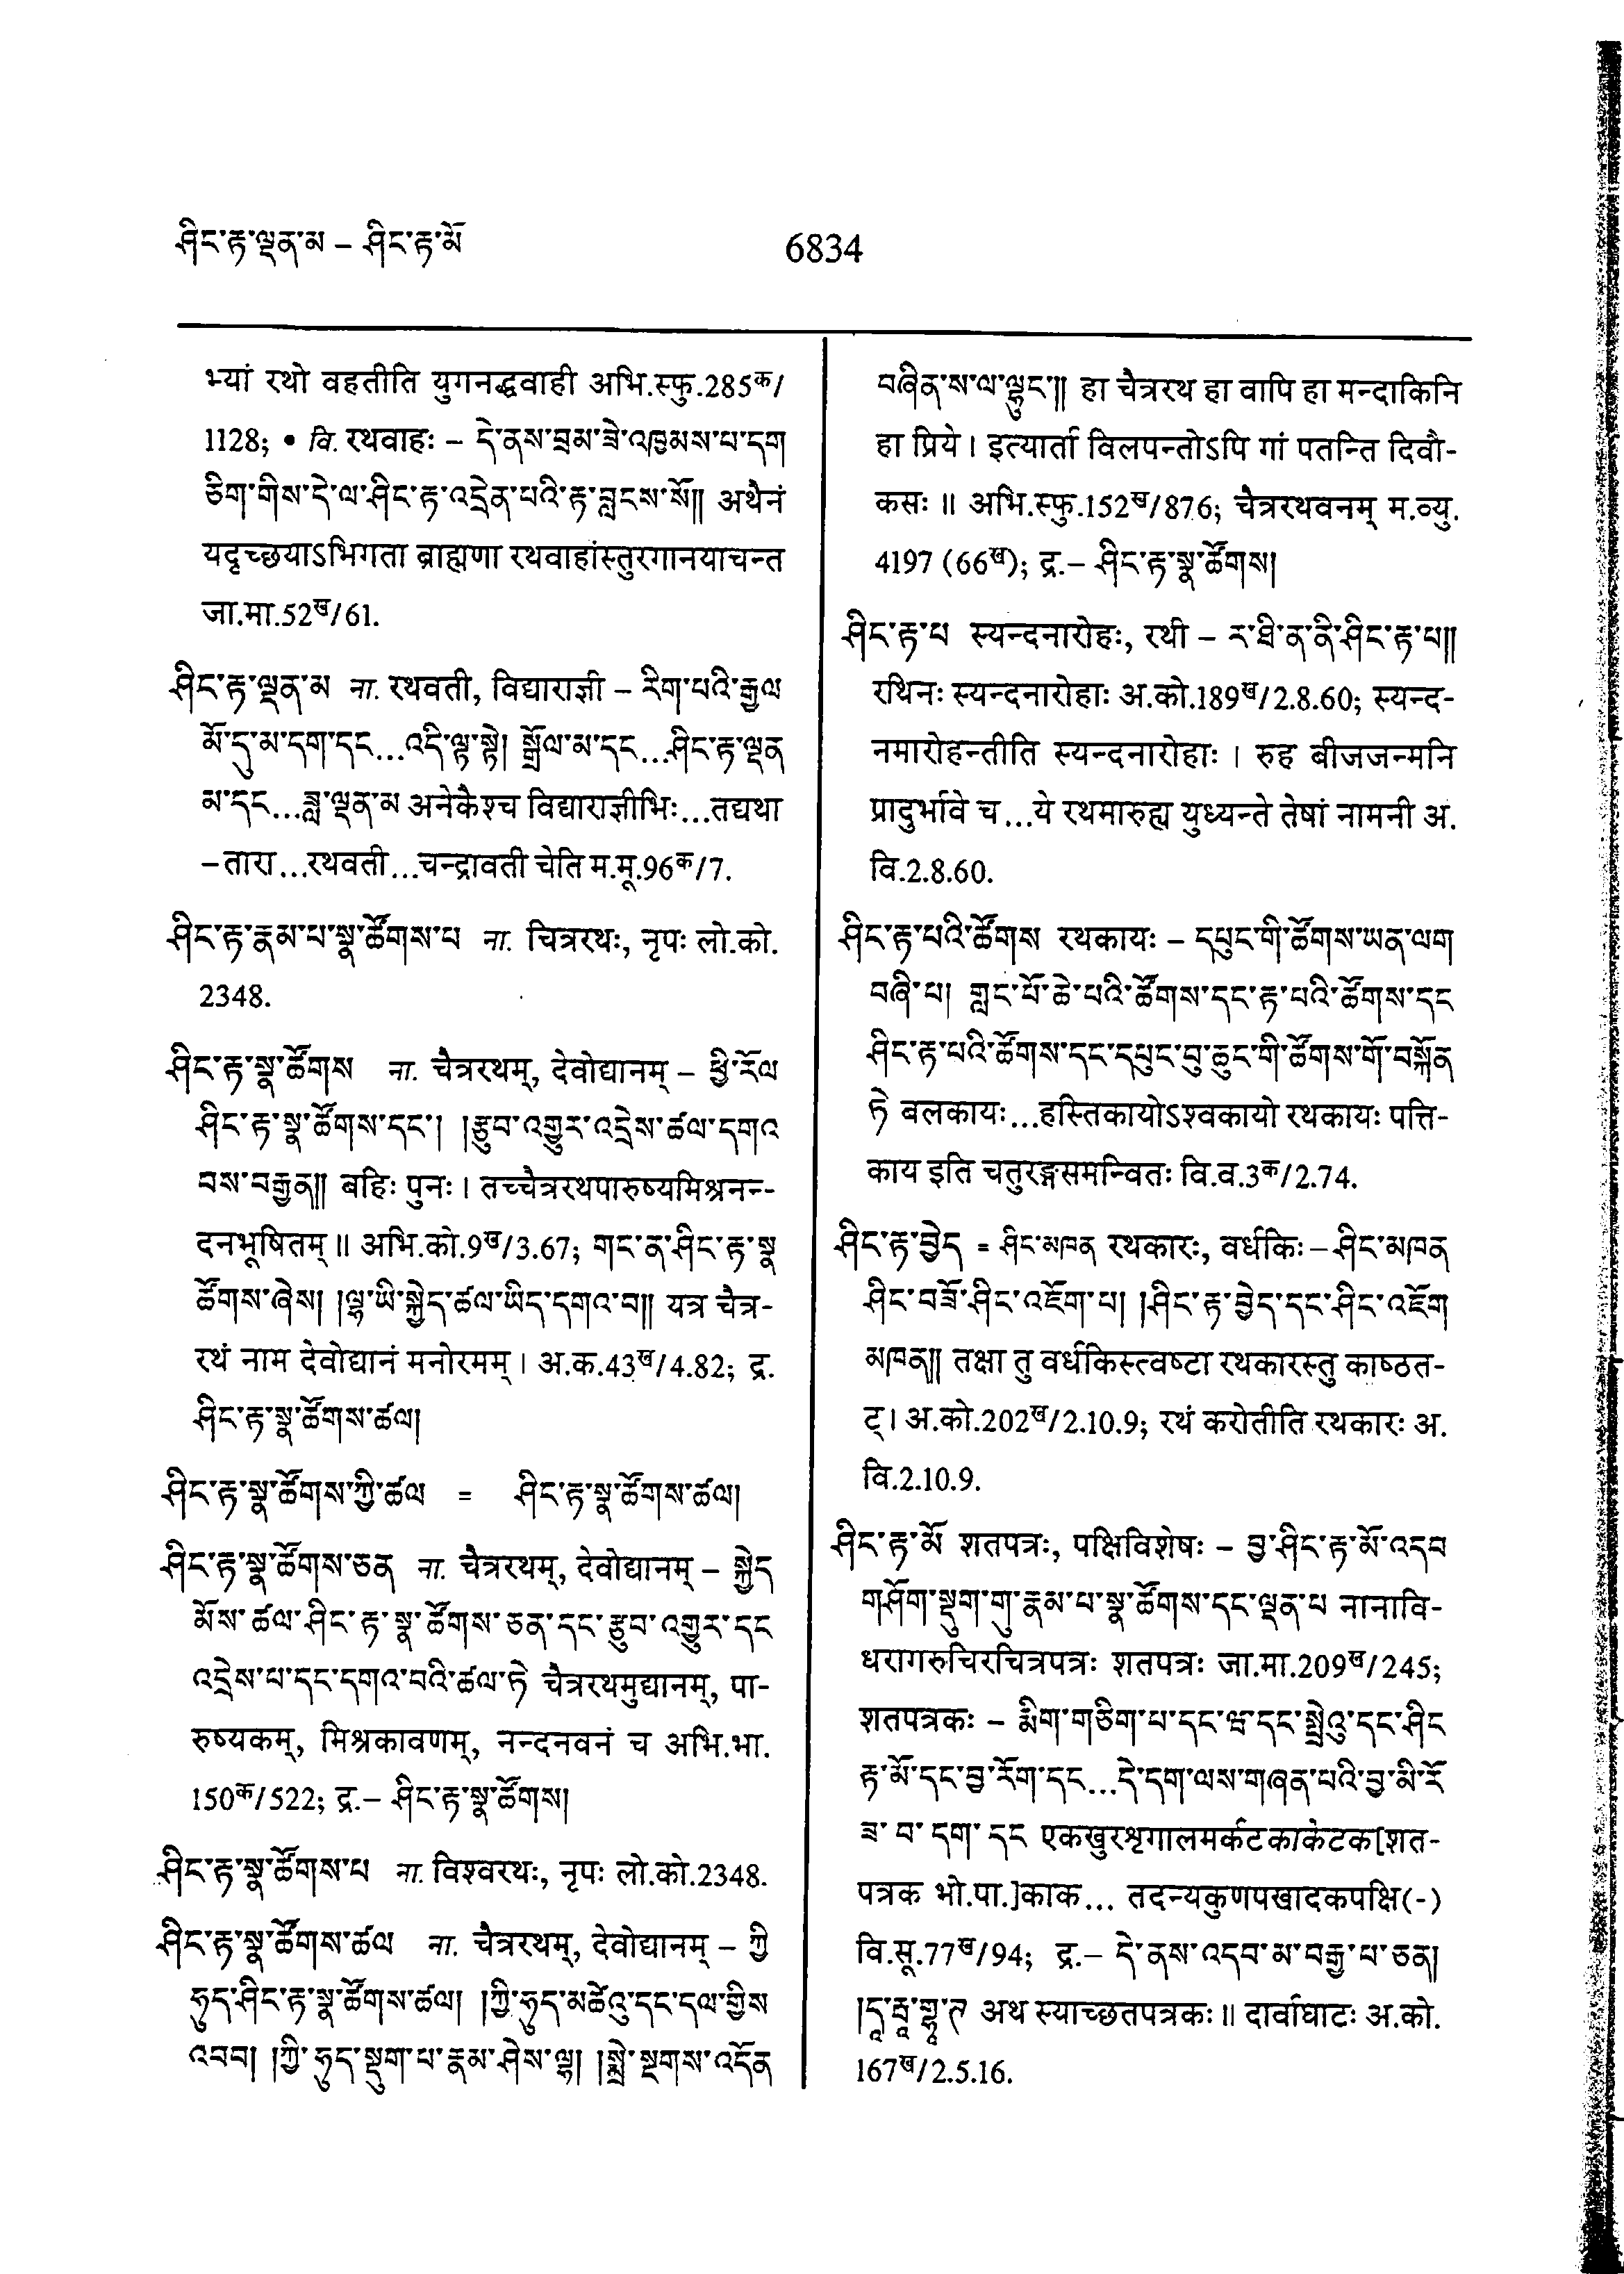 ཤིང་རྟ་ལྡན་མ – ཤིང་རྟ་མོ
6834
भ्यां रथो वहतीति युगनद्धवाही अभि.स्फु.285क/
1128; • वि. रथवाहः – དེ་ནས་བྲམ་ཟེ་འཁྱམས་པ་དག
ཅིག་གིས་དེ་ལ་ཤིང་རྟ་འདྲེན་པའི་རྟ་བླངས་སོ།། अथैनं
यदृच्छयाऽभिगता ब्राह्मणा रथवाहांस्तुरगानयाचन्त
जा.मा.52ख/61.
ཤིང་རྟ་ལྡན་མ ना. रथवती, विद्याराज्ञी – རིག་པའི་རྒྱལ
མོ་དུ་མ་དག་དང...འདི་ལྟ་སྟེ། སྒྲོལ་མ་དང...ཤིང་རྟ་ལྡན
མ་དང...ཟླ་ལྡན་མ अनेकैश्च विद्याराज्ञीभिः...तद्यथा
– तारा...रथवती...चन्द्रावती चेति म.मू.96क/7.
ཤིང་རྟ་རྣམ་པ་སྣ་ཚོགས་པ ना. चित्ररथः, नृपः लो.को.
2348.
ཤིང་རྟ་སྣ་ཚོགས ना. चैत्ररथम्, देवोद्यानम् – ཕྱི་རོལ
ཤིང་རྟ་སྣ་ཚོགས་དང་། །རྩུབ་འགྱུར་འདྲེས་ཚལ་དགའ
བས་བརྒྱན།། बहिः पुनः । तच्चैत्ररथपारुष्यमिश्रनन्-
दनभूषितम् ॥ अभि.को.9ख/3.67; གང་ན་ཤིང་རྟ་སྣ
ཚོགས་ཞེས། །ལྷ་ཡི་སྐྱེད་ཚལ་ཡིད་དགའ་བ།། यत्र चैत्र-
रथं नाम देवोद्यानं मनोरमम् । अ.क.43ख/4.82; द्र.
ཤིང་རྟ་སྣ་ཚོགས་ཚལ།
ཤིང་རྟ་སྣ་ཚོགས་ཀྱི་ཚལ = ཤིང་རྟ་སྣ་ཚོགས་ཚལ།
ཤིང་རྟ་སྣ་ཚོགས་ཅན ना. चैत्ररथम्, देवोद्यानम् – སྐྱེད
མོས་ཚལ་ཤིང་རྟ་སྣ་ཚོགས་ཅན་དང་རྩུབ་འགྱུར་དང
འདྲེས་པ་དང་དགའ་བའི་ཚལ་ཏེ चैत्ररथमुद्यानम्, पा-
रुष्यकम्, मिश्रकावणम्, नन्दनवनं च अभि.भा.
150क/522; द्र.– ཤིང་རྟ་སྣ་ཚོགས།
ཤིང་རྟ་སྣ་ཚོགས་པ ना. विश्वरथः, नृपः लो.को.2348.
ཤིང་རྟ་སྣ་ཚོགས་ཚལ ना. चैत्ररथम्, देवोद्यानम् – ཀྱི
ཧུད་ཤིང་རྟ་སྣ་ཚོགས་ཚལ། །ཀྱི་ཧུད་མཚེའུ་དང་དལ་གྱིས
འབབ། །ཀྱི་ཧུད་སྡུག་པ་རྣམ་ཤེས་ལྷ། །སྨྲེ་སྔགས་འདོན
བཞིན་ས་ལ་ལྷུང་།། हा चैत्ररथ हा वापि हा मन्दाकिनि
हा प्रिये । इत्यार्ता विलपन्तोऽपि गां पतन्ति दिवौ-
कसः ॥ अभि.स्फु.152ख/876; चैत्ररथवनम् म.व्यु.
4197 (66ख); द्र.– ཤིང་རྟ་སྣ་ཚོགས།
ཤིང་རྟ་པ स्यन्दनारोहः, रथी – ར་ཐི་ན་ནི་ཤིང་རྟ་པ།།
रथिनः स्यन्दनारोहाः अ.को.189ख/2.8.60; स्यन्द-
नमारोहन्तीति स्यन्दनारोहाः । रुह बीजजन्मनि
प्रादुर्भावे च...ये रथमारुह्य युध्यन्ते तेषां नामनी अ.
वि.2.8.60.
ཤིང་རྟ་པའི་ཚོགས रथकायः – དཔུང་གི་ཚོགས་ཡན་ལག
བཞི་པ། གླང་པོ་ཆེ་པའི་ཚོགས་དང་རྟ་པའི་ཚོགས་དང
ཤིང་རྟ་པའི་ཚོགས་དང་དཔུང་བུ་ཆུང་གི་ཚོགས་གོ་བསྐོན
ཏེ बलकायः...हस्तिकायोऽश्वकायो रथकायः पत्ति-
काय इति चतुरङ्गसमन्वितः वि.व.3क/2.74.
ཤིང་རྟ་བྱེད = ཤིང་མཁན रथकारः, वर्धकिः – ཤིང་མཁན
ཤིང་བཟོ་ཤིང་འཇོག་པ། །ཤིང་རྟ་བྱེད་དང་ཤིང་འཇོག
མཁན།། तक्षा तु वर्धकिस्त्वष्टा रथकारस्तु काष्ठत-
ट् । अ.को.202ख/2.10.9; रथं करोतीति रथकारः अ.
वि.2.10.9.
ཤིང་རྟ་མོ शतपत्रः, पक्षिविशेषः – བྱ་ཤིང་རྟ་མོ་འདབ
གཤོག་སྡུག་གུ་རྣམ་པ་སྣ་ཚོགས་དང་ལྡན་པ नानावि-
धरागरुचिरचित्रपत्रः शतपत्रः जा.मा.209ख/245;
शतपत्रकः – རྨིག་གཅིག་པ་དང་ཝ་དང་སྤྲེའུ་དང་ཤིང
རྟ་མོ་དང་བྱ་རོག་དང...དེ་དག་ལས་གཞན་པའི་བྱ་མི་རོ
ཟ་བ་དག་དང एकखुरशृगालमर्कटकाकेटक[शत-
पत्रक भो.पा.]काक... तदन्यकुणपखादकपक्षि(-)
वि.सू.77ख/94; द्र.– དེ་ནས་འདབ་མ་བརྒྱ་པ་ཅན།
།དཱ་རྦཱ་གྷཱ་ཊ अथ स्याच्छतपत्रकः ॥ दार्वाघाटः अ.को.
167ख/2.5.16.